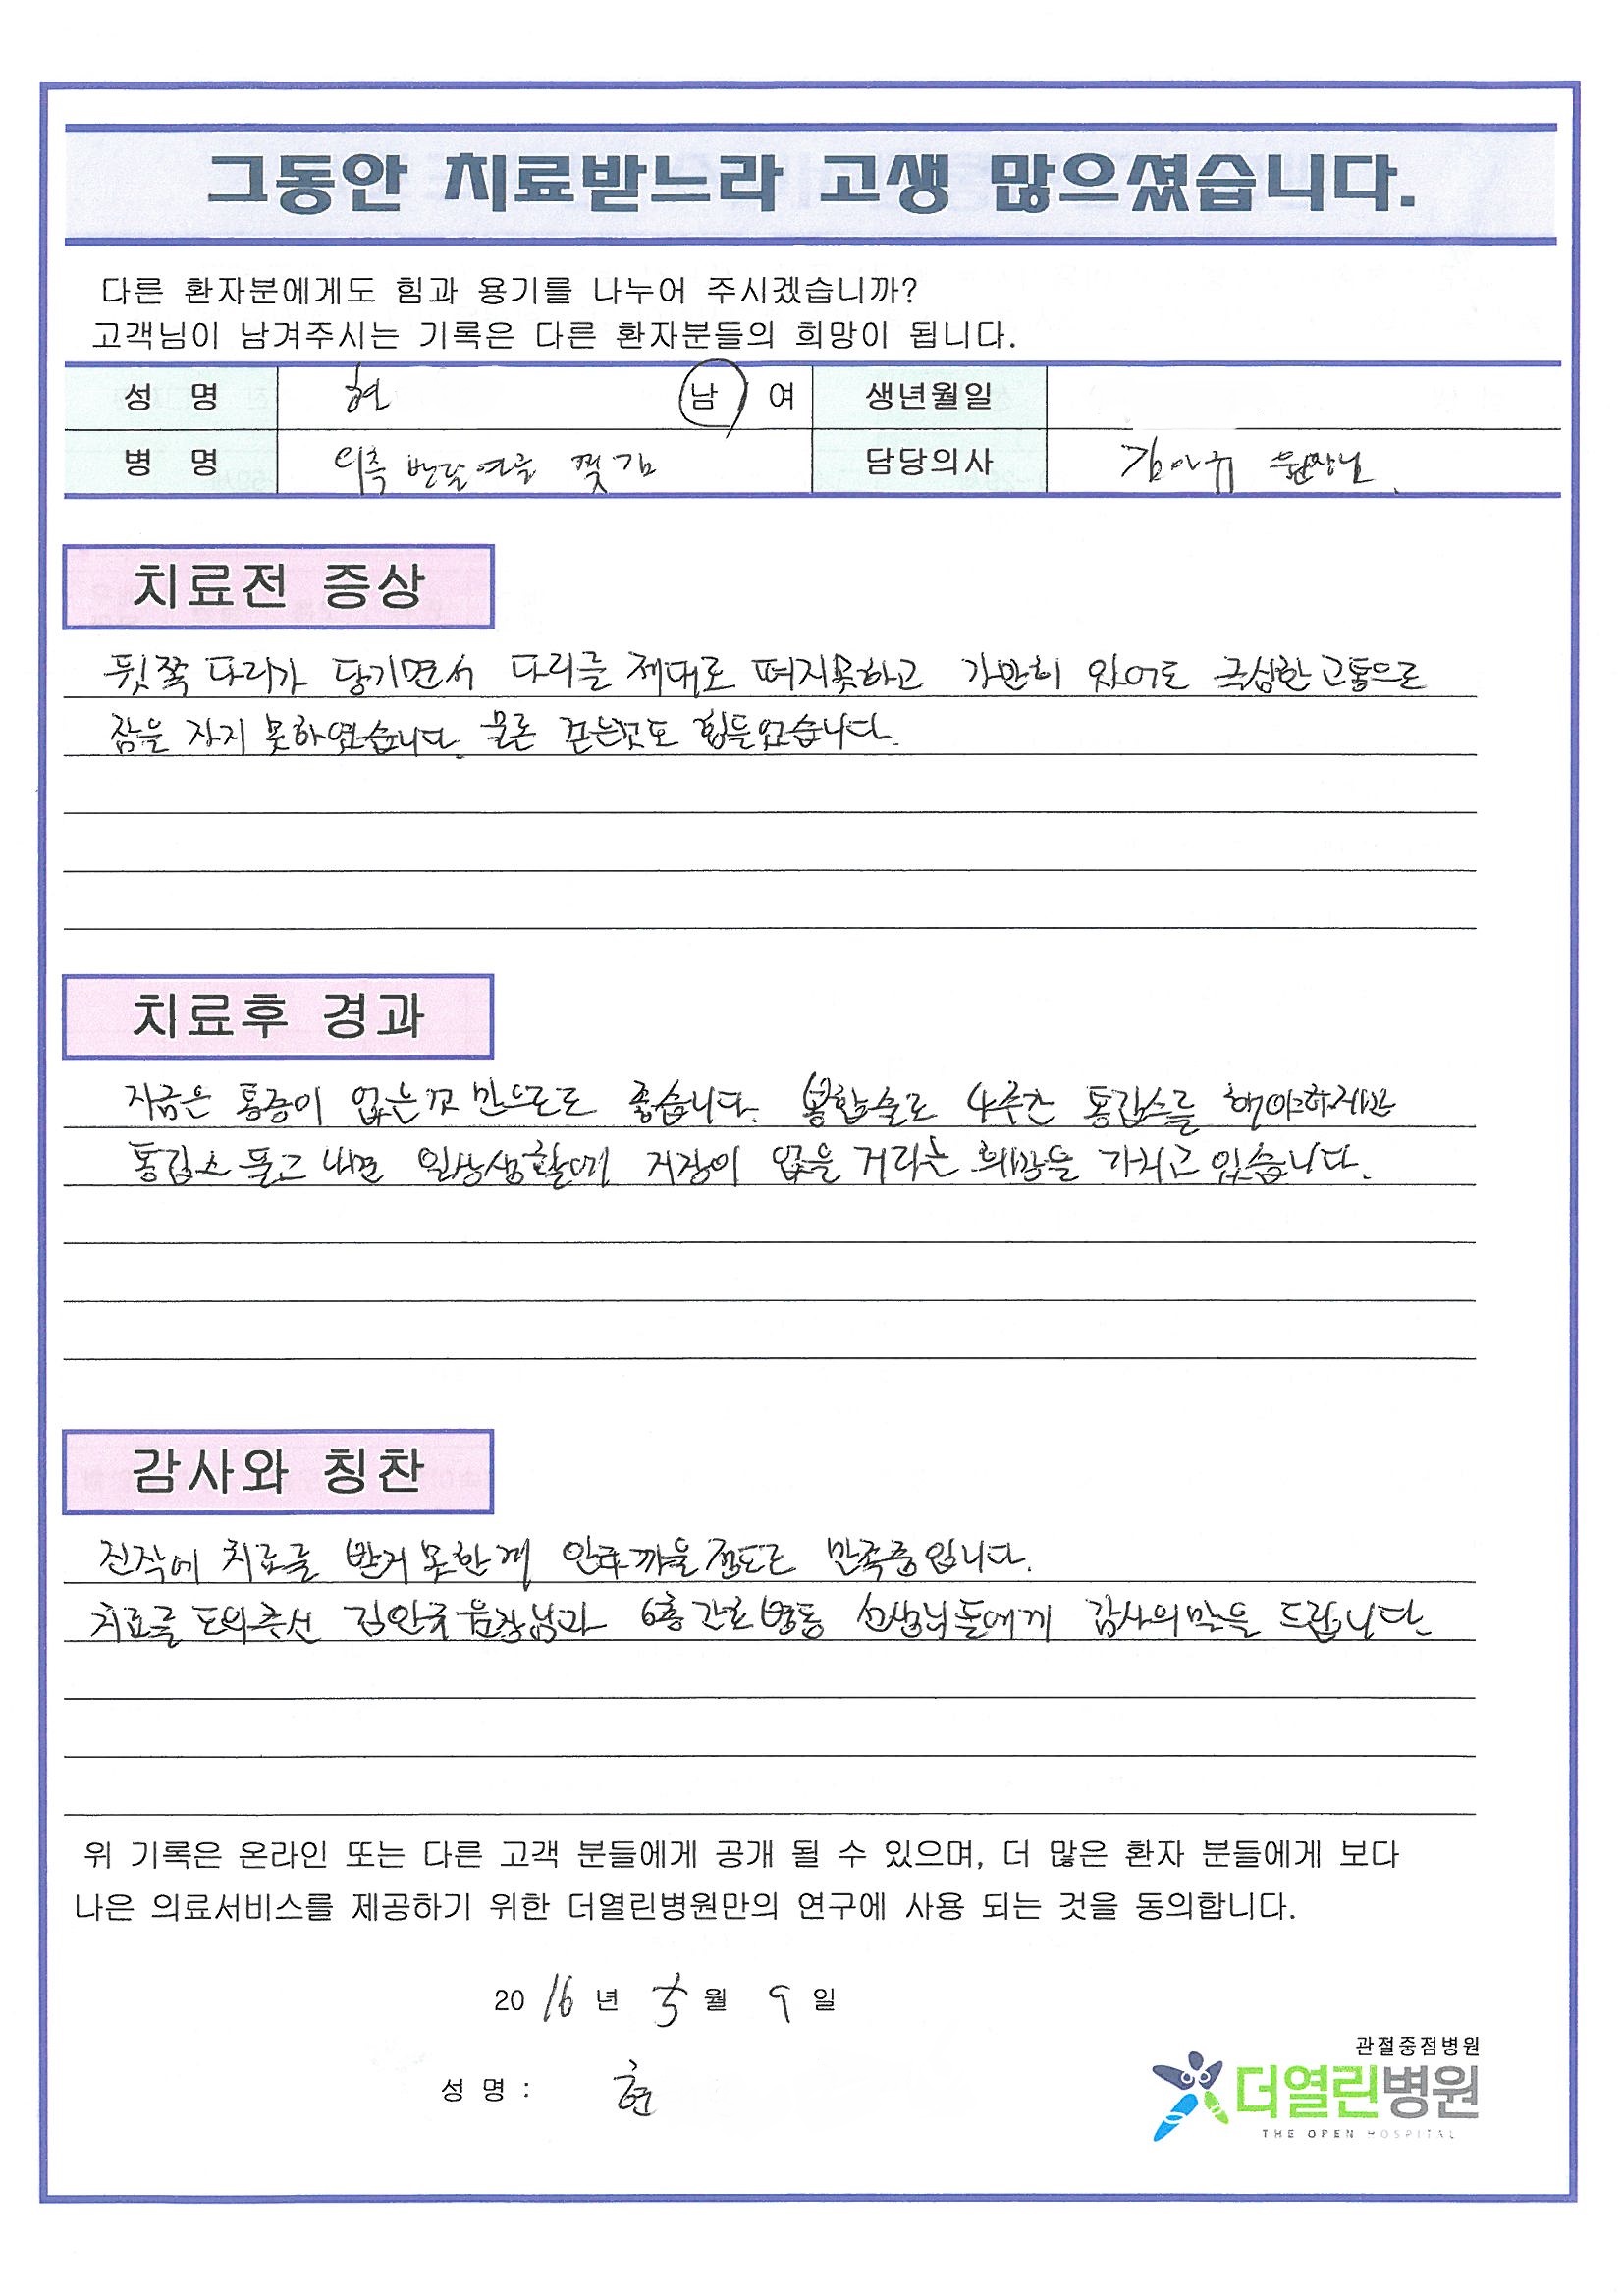 그동안 치료받느라 고생 많으셨습니다.
다른 환자분에게도 힘과 용기를 나누어 주시겠습니까?
고객님이 남겨주시는 기록은 다른 환자분들의 희망이 됩니다.
성 명 현 남 여 생년월일
병 명 외측 반달연골 찢김 담당의사 원장님
치료전 증상
뒷쪽 다리가 당기면서 다리를 제대로 펴지못하고 가만히 있어도 극심한 고통으로
잠을 자지 못하였습니다. 물론 걷는것도 힘들었습니다.
치료후 경과
지금은 통증이 없는것 만으로도 좋습니다. 봉합술로 4주간 통깁스를 해야하지만
통깁스 풀고 나면 일상생활에 지장이 없을 거라는 희망을 가지고 있습니다.
감사와 칭찬
진작에 치료를 받지 못한게 안타까울정도로 만족중입니다.
치료를 도와주신 원장님과 6층 간호병동 선생님들에게 감사의말을 드립니다.
위 기록은 온라인 또는 다른 고객 분들에게 공개 될 수 있으며, 더 많은 환자 분들에게 보다
나은 의료서비스를 제공하기 위한 더열린병원만의 연구에 사용 되는 것을 동의합니다.
2016 년 5 월 9 일
관절중점병원
성 명 : 현
더열린병원
THE OPEN HOSPITAL